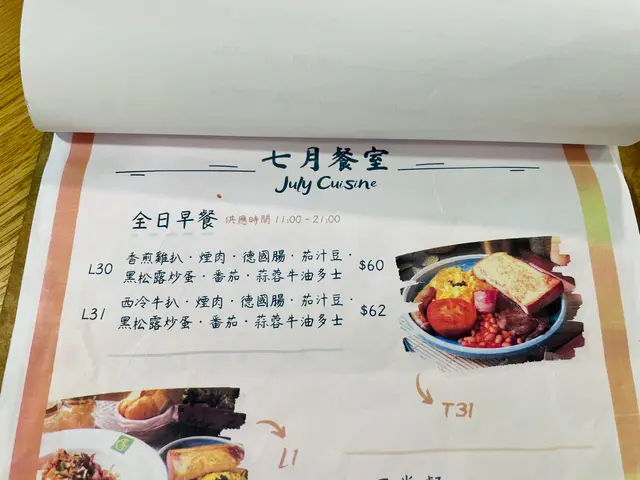 七月餐室
July Cuisine
全日早餐 供應時間 11:00 - 21:00
L30 香煎雞扒·煙肉·德國腸·茄汁豆· $60
黑松露炒蛋·番茄·蒜蓉牛油多士
L31 西冷牛扒·煙肉·德國腸·茄汁豆· $62
黑松露炒蛋·番茄·蒜蓉牛油多士
T31
L1